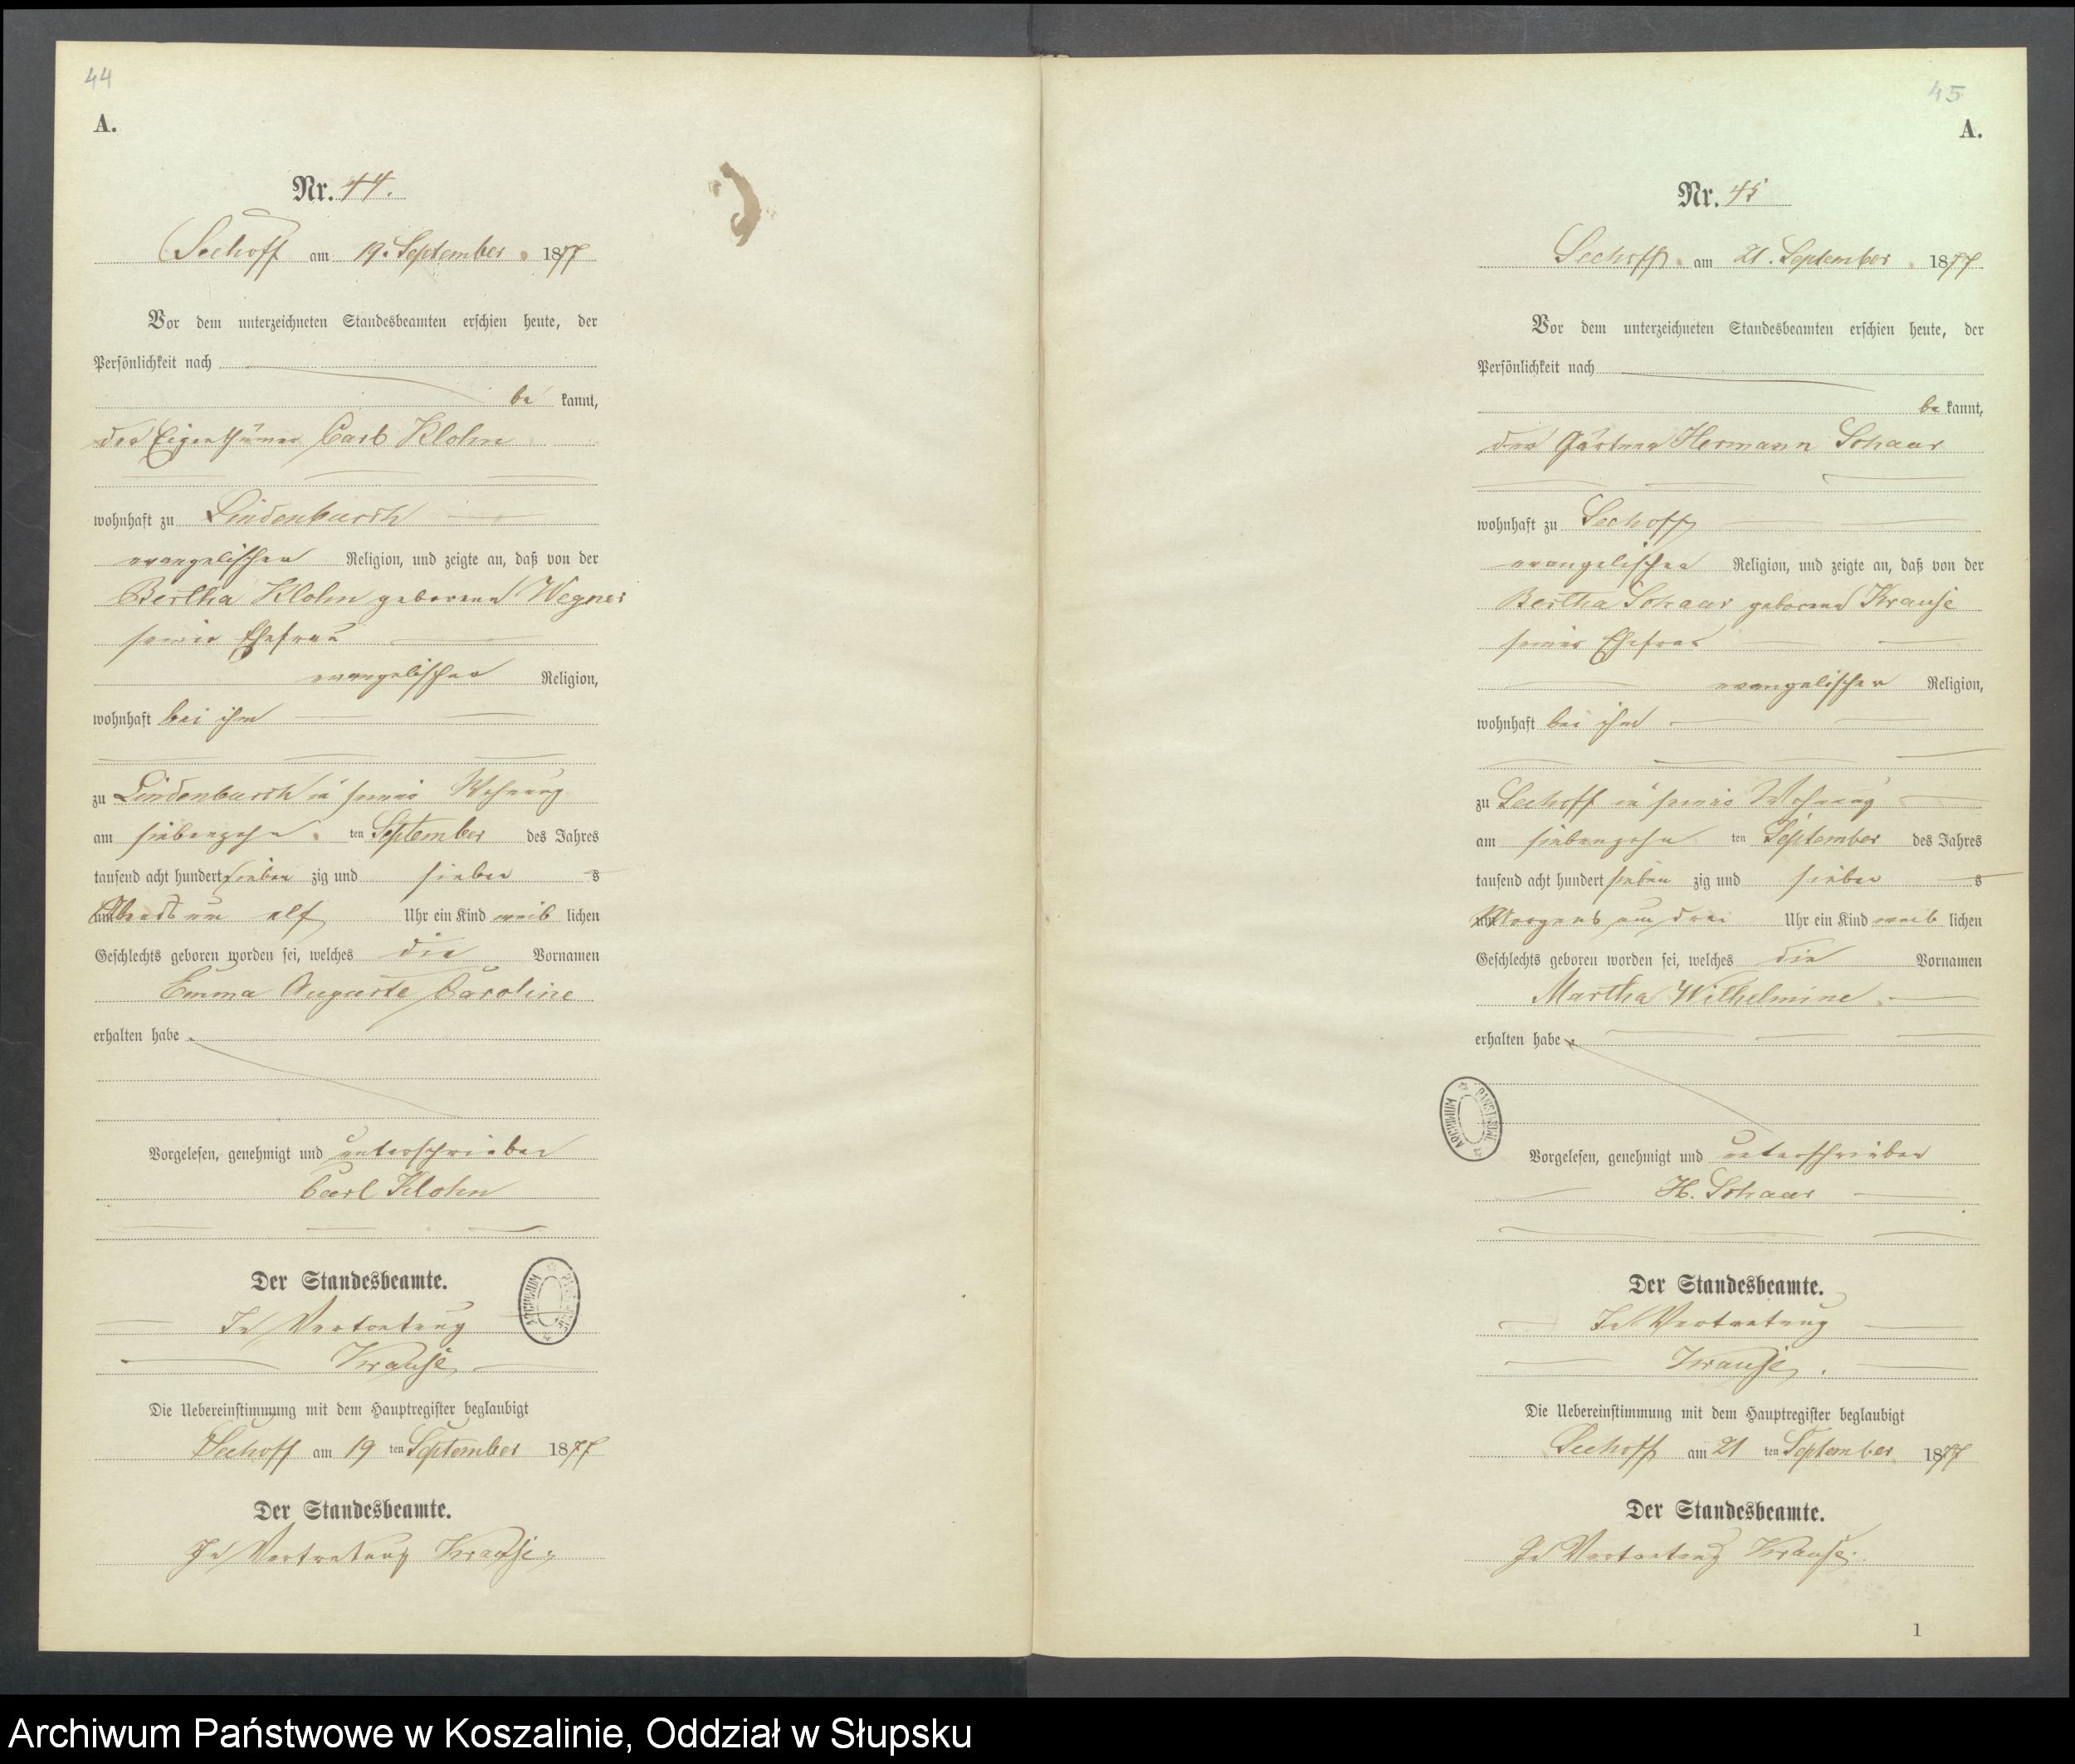 44
A.
Nr. 44.
Seehoff am 19. September 1877
Vor dem unterzeichneten Standesbeamten erschien heute, der
Persönlichkeit nach
be kannt,
der Eigenthümer Carl Klohn
wohnhaft zu Lindenbusch
evangelischen Religion, und zeigte an, daß von der
Bertha Klohn geborene Wegner
seiner Ehefrau
evangelischer Religion,
wohnhaft bei ihm
zu Lindenbusch in seiner Wohnung
am siebenzehn ten September des Jahres
tausend acht hundert sieben zig und sieben
Abends um elf Uhr ein Kind weib lichen
Geschlechts geboren worden sei, welches die Vornamen
Emma Auguste Caroline
erhalten habe.
Vorgelesen, genehmigt und unterschrieben
Carl Klohn
Der Standesbeamte.
In Vertretung
Krause
Die Uebereinstimmung mit dem Hauptregister beglaubigt
Seehoff am 19 ten September 1877
Der Standesbeamte.
In Vertretung Krause.
45
A.
Nr. 45
Seehoff am 21. September 1877
Vor dem unterzeichneten Standesbeamten erschien heute, der
Persönlichkeit nach
be kannt,
der Gärtner Hermann Schaar
wohnhaft zu Seehoff
evangelischen Religion, und zeigte an, daß von der
Bertha Schaar geborene Krause
seiner Ehefrau
evangelischer Religion,
wohnhaft bei ihm
zu Seehoff in seiner Wohnung
am siebenzehn ten September des Jahres
tausend acht hundert sieben zig und sieben
Morgens um drei Uhr ein Kind weib lichen
Geschlechts geboren worden sei, welches die Vornamen
Martha Wilhelmine
erhalten habe.
ARCHIWUM PAŃSTWOWE
Vorgelesen, genehmigt und unterschrieben
H. Schaar
Der Standesbeamte.
In Vertretung
Krause.
Die Uebereinstimmung mit dem Hauptregister beglaubigt
Seehoff am 21 ten September 1877
Der Standesbeamte.
In Vertretung Krause.
1
Archiwum Państwowe w Koszalinie, Oddział w Słupsku